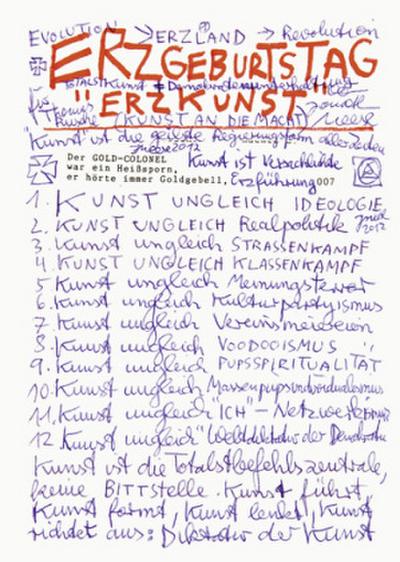 EVOLUTION > ERZLAND → Revolution
ERZGEBURTSTAG
TOTALSTKunst
"ERZKUNST"
Für Thomas
(KUNST AN DIE MACHT) Meese
"Kunst" ist die geilste Regierungsform aller Zeiten
Meese 2012
Der GOLD-COLONEL Kunst ist
war ein Heißsporn,
er hörte immer Goldgebell, Erzführung 007
1. KUNST UNGLEICH IDEOLOGIE
2. KUNST UNGLEICH Realpolitik
2012
3. Kunst ungleich STRASSENKAMPF
4. KUNST UNGLEICH KLASSENKAMPF
5 Kunst ungleich Meinungsterror
6. Kunst ungleich Kulturpartyismus
7. Kunst ungleich Vereinsmeiereien
8. Kunst ungleich VOODOOISMUS
9. Kunst ungleich PUPSSPIRITUALITÄT
10. Kunst ungleich Massenpupsindividualismus
11. Kunst ungleich "ICH" – Netzwerkerei
12 Kunst ungleich "Weltdiktatur der Demokratie
Kunst ist die Totalstbefehlszentrale,
keine BITTstelle. Kunst führt,
Kunst formt, Kunst lenkt, Kunst
richtet aus: Diktatur der Kunst